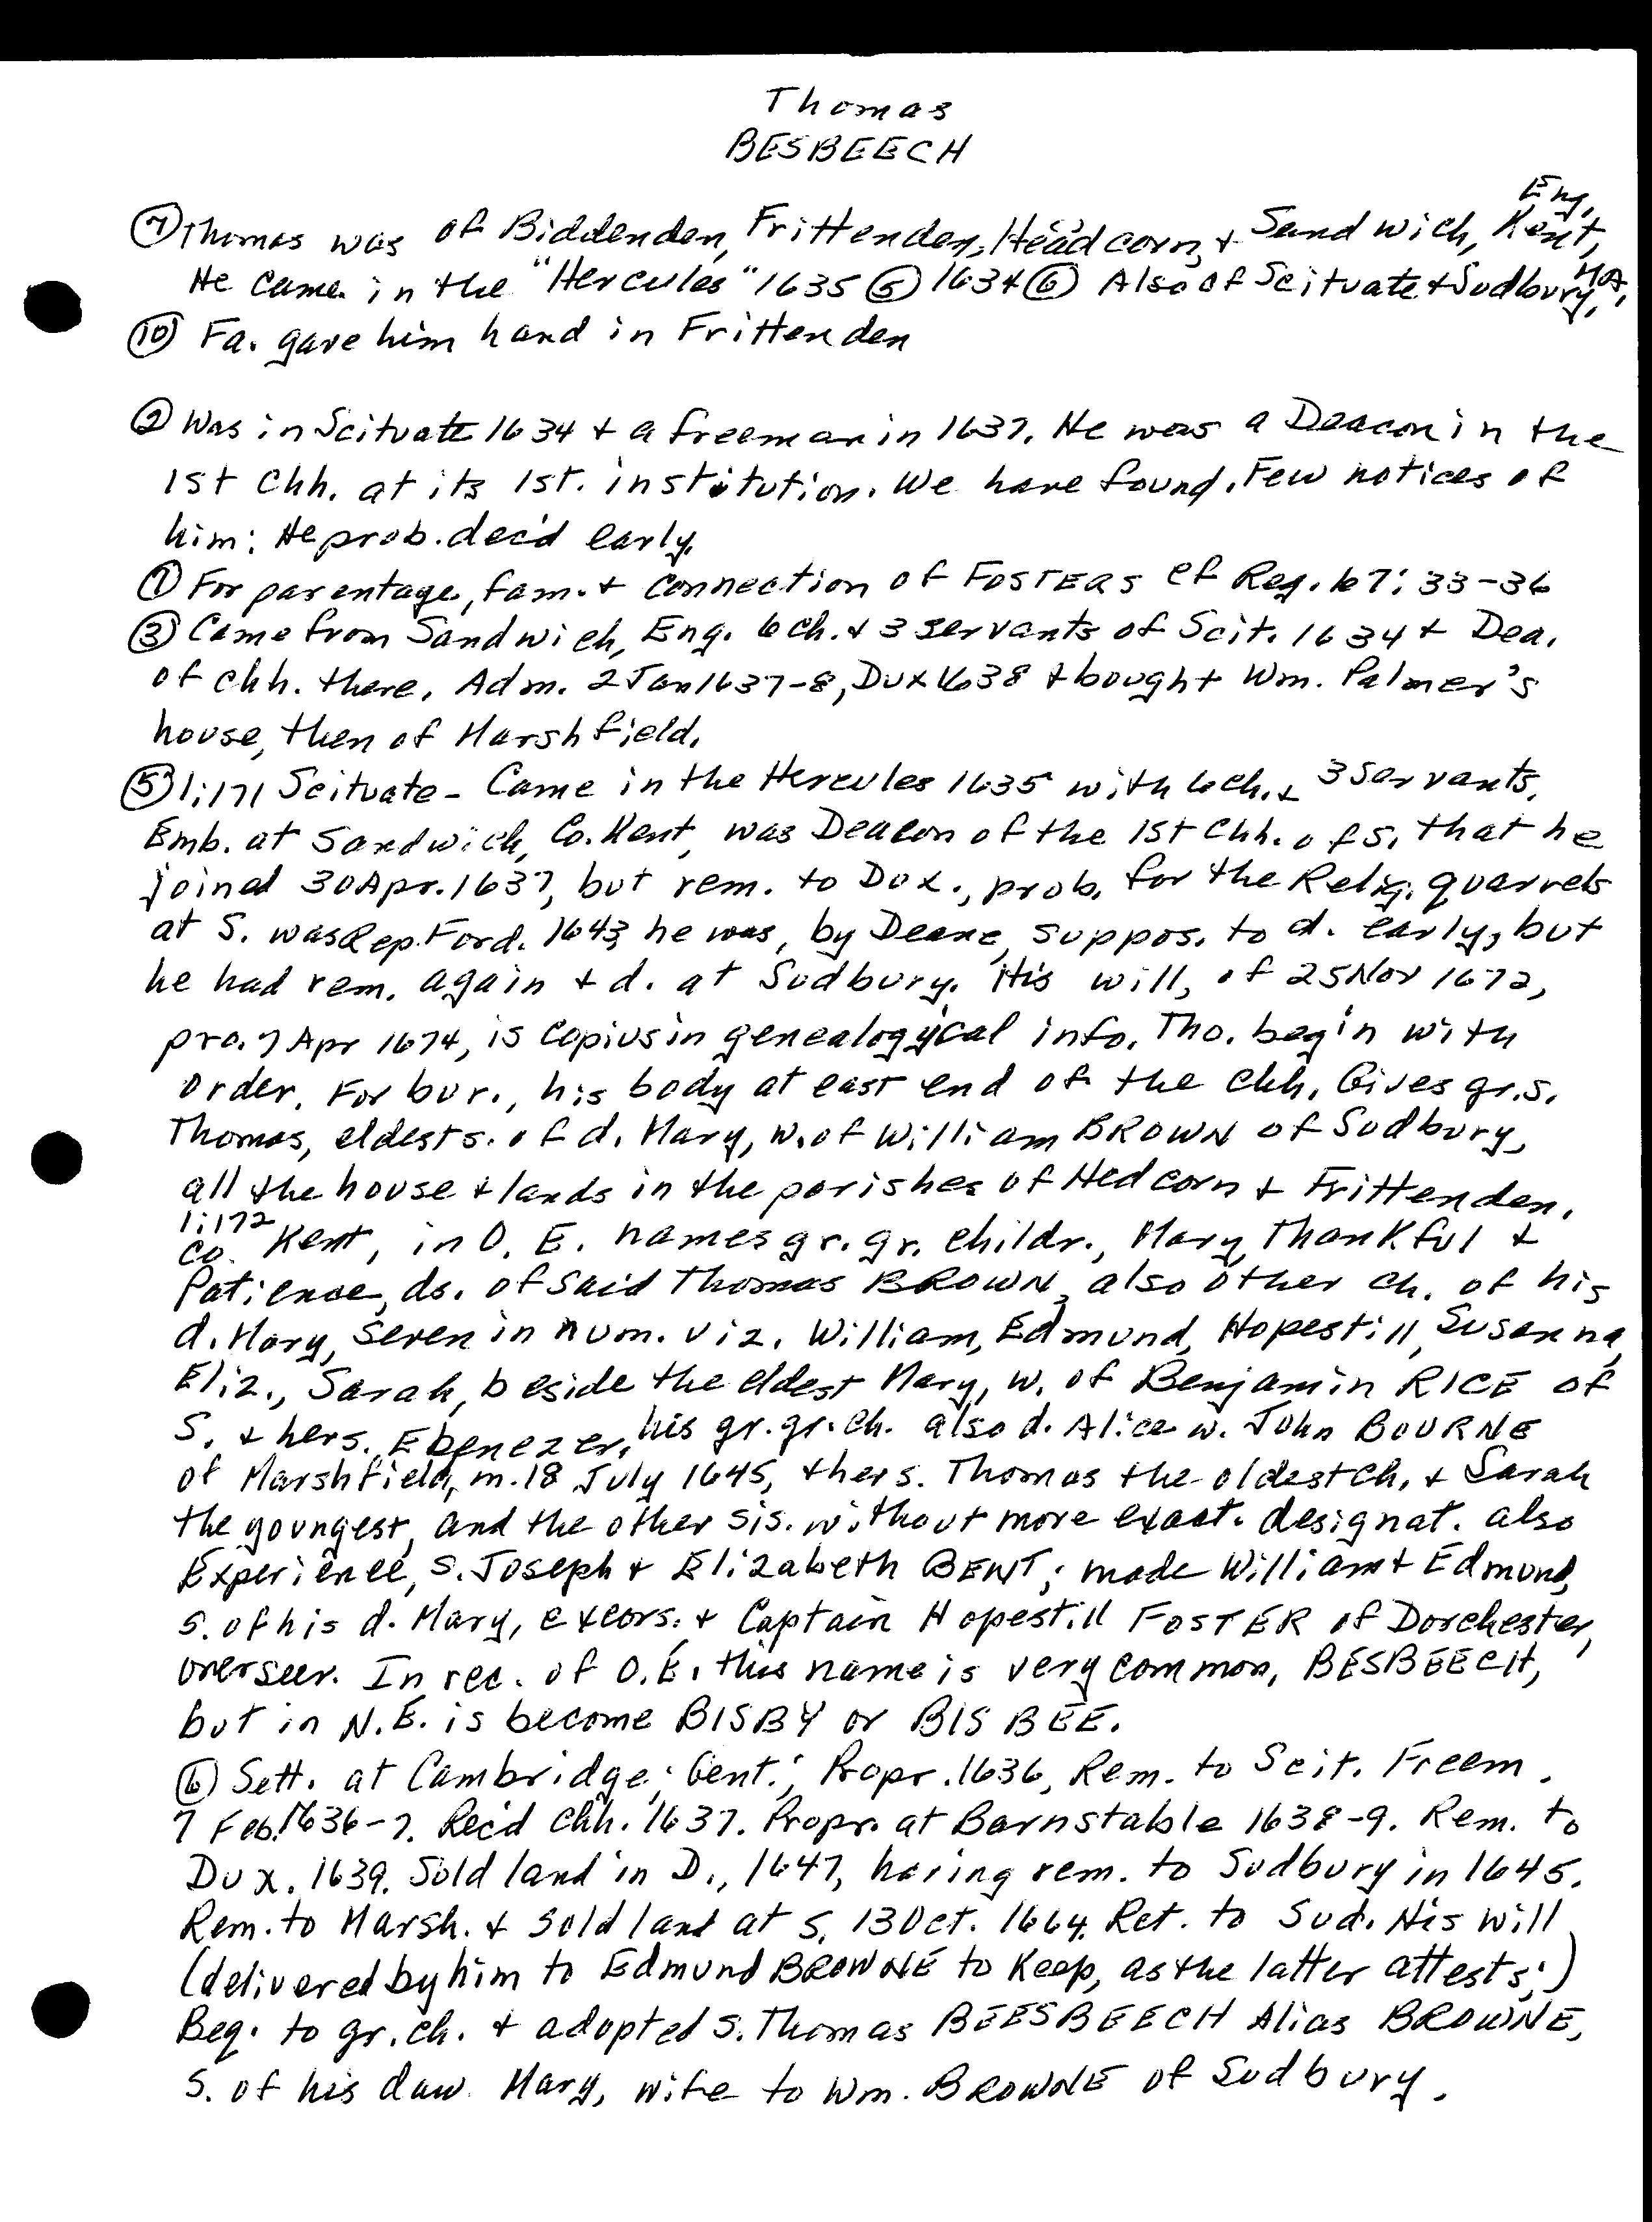 Thomas
BESBEECH
Eng,
⑦ Thomas was of Biddenden, Frittenden, Headcorn, + Sandwich, Kent,
He came in the "Hercules" 1635 ⑤ 1634 ⑥ Also of Scituate + Sudbury, MA.
⑩ Fa. gave him hand in Frittenden
② Was in Scituate 1634 + a freeman in 1637. He was a Deacon in the
1st Chh. at its 1st. institution. We have found. Few notices of
him: He prob. dec'd early.
① For parentage, fam. + Connection of FOSTERS cf Reg. 67: 33-36
③ Came from Sandwich, Eng. 6 ch. + 3 servants of Scit. 1634 + Dea.
of chh. there. Adm. 2 Jan 1637-8, Dux 1638 + bought Wm. Palmer's
house, then of Marshfield.
⑤ 1:171 Scituate - Came in the Hercules 1635 with 6 ch. + 3 Servants.
Emb. at Sandwich, Co. Kent, was Deacon of the 1st Chh. of S. that he
joined 30 Apr. 1637, but rem. to Dux., prob. for the Relig. quarrels
at S. was Rep. Ford. 1643 he was, by Deane, suppos. to d. early, but
he had rem. again + d. at Sudbury. His will, of 25 Nov 1672,
pro. 7 Apr 1674, is copius in genealogycal info. Tho. begin with
order. For bur., his body at east end of the Chh. Gives gr. s.
Thomas, eldest s. of d. Mary, w. of William BROWN of Sudbury,
all the house + lands in the parishes of Hedcorn + Frittenden.
1:172
Co. Kent, in O. E. names gr. gr. childr., Mary, Thankful +
Patience, ds. of said Thomas BROWN, also other ch. of his
d. Mary, seven in num. viz. William, Edmund, Hopestill, Susanna,
Eliz., Sarah, beside the eldest Mary, w. of Benjamin RICE of
S. + her s. Ebenezer, his gr. gr. ch. also d. Alice w. John BOURNE
of Marshfield, m. 18 July 1645, + her s. Thomas the oldest ch. + Sarah
the youngest, and the other sis. without more exact. designat. also
Experience, s. Joseph + Elizabeth BENT; made William + Edmund,
s. of his d. Mary, excors. + Captain Hopestill FOSTER of Dorchester,
overseer. In rec. of O.E. this name is very common, BESBEECH,
but in N.E. is become BISBY or BISBEE.
⑥ Sett. at Cambridge; Gent.; Propr. 1636, Rem. to Scit. Freem.
7 Feb. 1636-7. Rec'd Chh. 1637. Propr. at Barnstable 1638-9. Rem. to
Dux. 1639. Sold land in D., 1647, having rem. to Sudbury in 1645.
Rem. to Marsh. + sold land at S. 13 Oct. 1664. Ret. to Sud. His will
(delivered by him to Edmund BROWNE to Keep, as the latter attests;)
Beq. to gr. ch. + adopted s. Thomas BEESBEECH Alias BROWNE,
s. of his daw. Mary, wife to Wm. BROWNE of Sudbury.